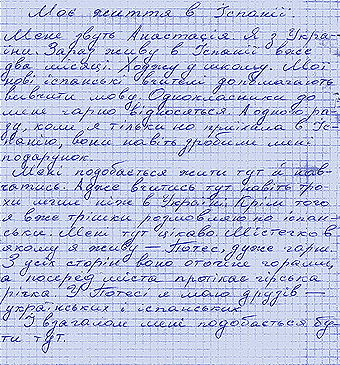 Моє життя в Іспанії.
Мене звуть Анастасія. Я з Укра-
їни. Зараз живу в Іспанії вже
два місяці. Ходжу в школу. Мої
нові іспанські вчителі допомагають
вивчити мову. Однокласники до
мене гарно відносяться. А одного ра-
зу, коли я тільки но приїхала в Іс-
панію, вони навіть зробили мені
подарунок.
Мені подобається жити тут й нав-
чатись. Адже вчитись тут навіть тро-
хи легше ніж в Україні. Крім того
я вже трішки розмовляю на іспан-
ській. Мені тут цікаво. Містечко в
якому я живу – Потес, дуже гарне.
З усіх сторін воно оточим горами,
а посеред міста протікає гірська
річка. У Потесі я маю друзів –
українських і іспанських.
І взагалом мені подобається бу-
ти тут.